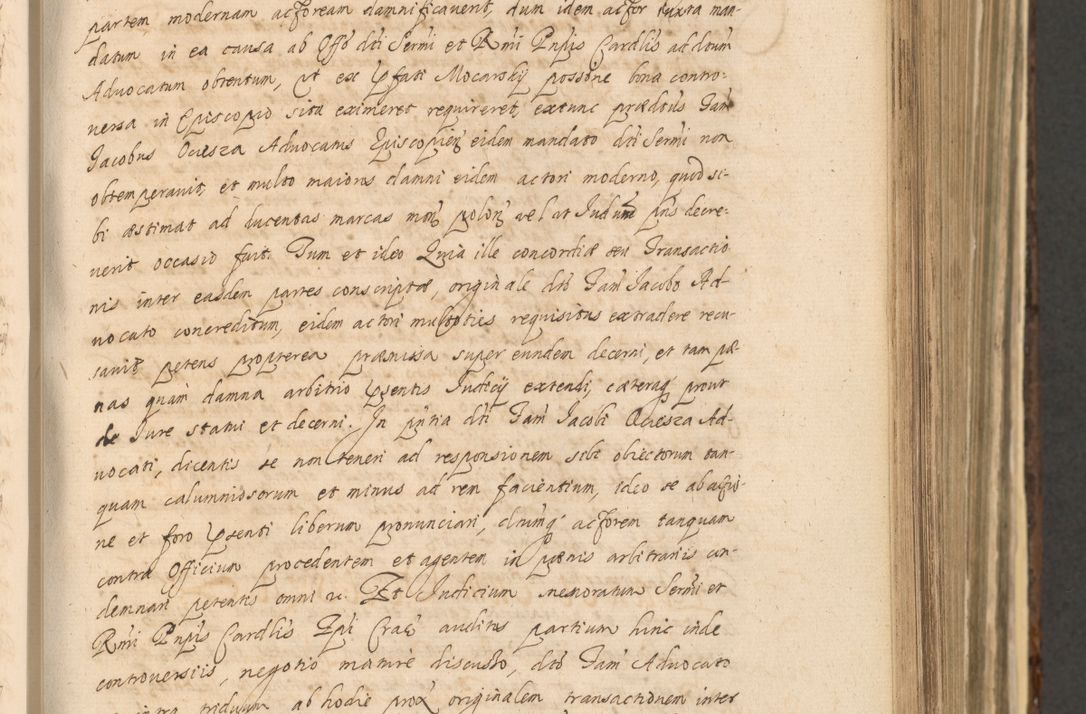 partem modernam actoream damnificaverit, dum idem actor iuxta man-
datum in ea causa ab Offō dti Sermi et Rmi Pnpis Cardlis ad dtum
Advocatum obtentum, ut ex pfati Mocarskÿ possōne bona contro-
versa in Episcopio sita eximeret requireret, extunc prædtus Fam
Jacobus Ociesza Advocatus Episcopien eidem mandato dti Sermi non
obtemperavit, et multo maioris damni eidem actori moderno, quod si-
bi æstimat ad ducentas marcas mon polon vel ut Judum pns decre-
verit occasio fuit. Tum et ideo Quia ille concordiæ seu Transactio
nis inter easdem partes conscriptæ, originale dto Fam Jacobo Ad-
vocato concreditum, eidem actori multoties requisitus extradere recu-
savit petens propterea præmissa super eundem decerni, et tam pæ-
nas quam damna arbitrio psentis Judicÿ extendi, cæteraq prout
de Jure statui et decerni. In pntia dti Fam Jacobi Ociesza Ad-
vocati, dicentis se non teneri ad responsionem sibi obiectorum tan-
quam calumniosorum et minus ad rem facientium, ideo se ab actio-
ne et foro psenti liberum pronunciari, dtumq actorem tanquam
contra Officium procedentem et agentem in pænis arbitrariis con-
demnari petentis omni &c. Et Judicium memoratum Sermi et
Rmi Pnpis Cardlis Epi Crac auditis partium hinc inde
controversiis, negotio mature discusso, dto Fam Advocato
intra triduum ab hodie prox originalem transactionem inter